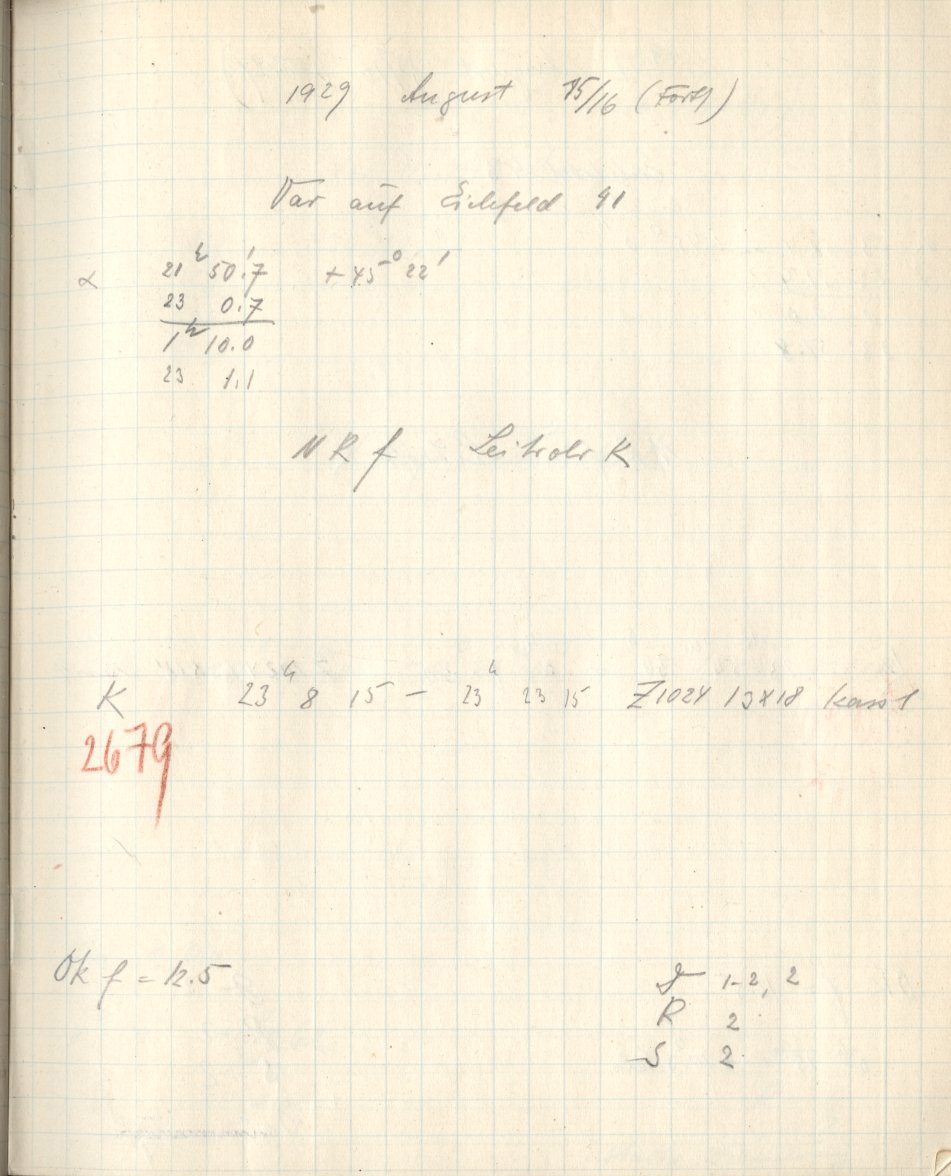 1929 August 15/16 (Forts)
Var auf Eichfeld 91
α 21ʰ 50.'7 + 45° 22'
23 0.7
1ʰ 10.0
23 1.1
N R f Leitrohr K
K 23ʰ 8 15 – 23ʰ 23 15 Z1024 13×18 Kass 1
2679
Ok f = 12.5
1-2, 2
R 2
S 2